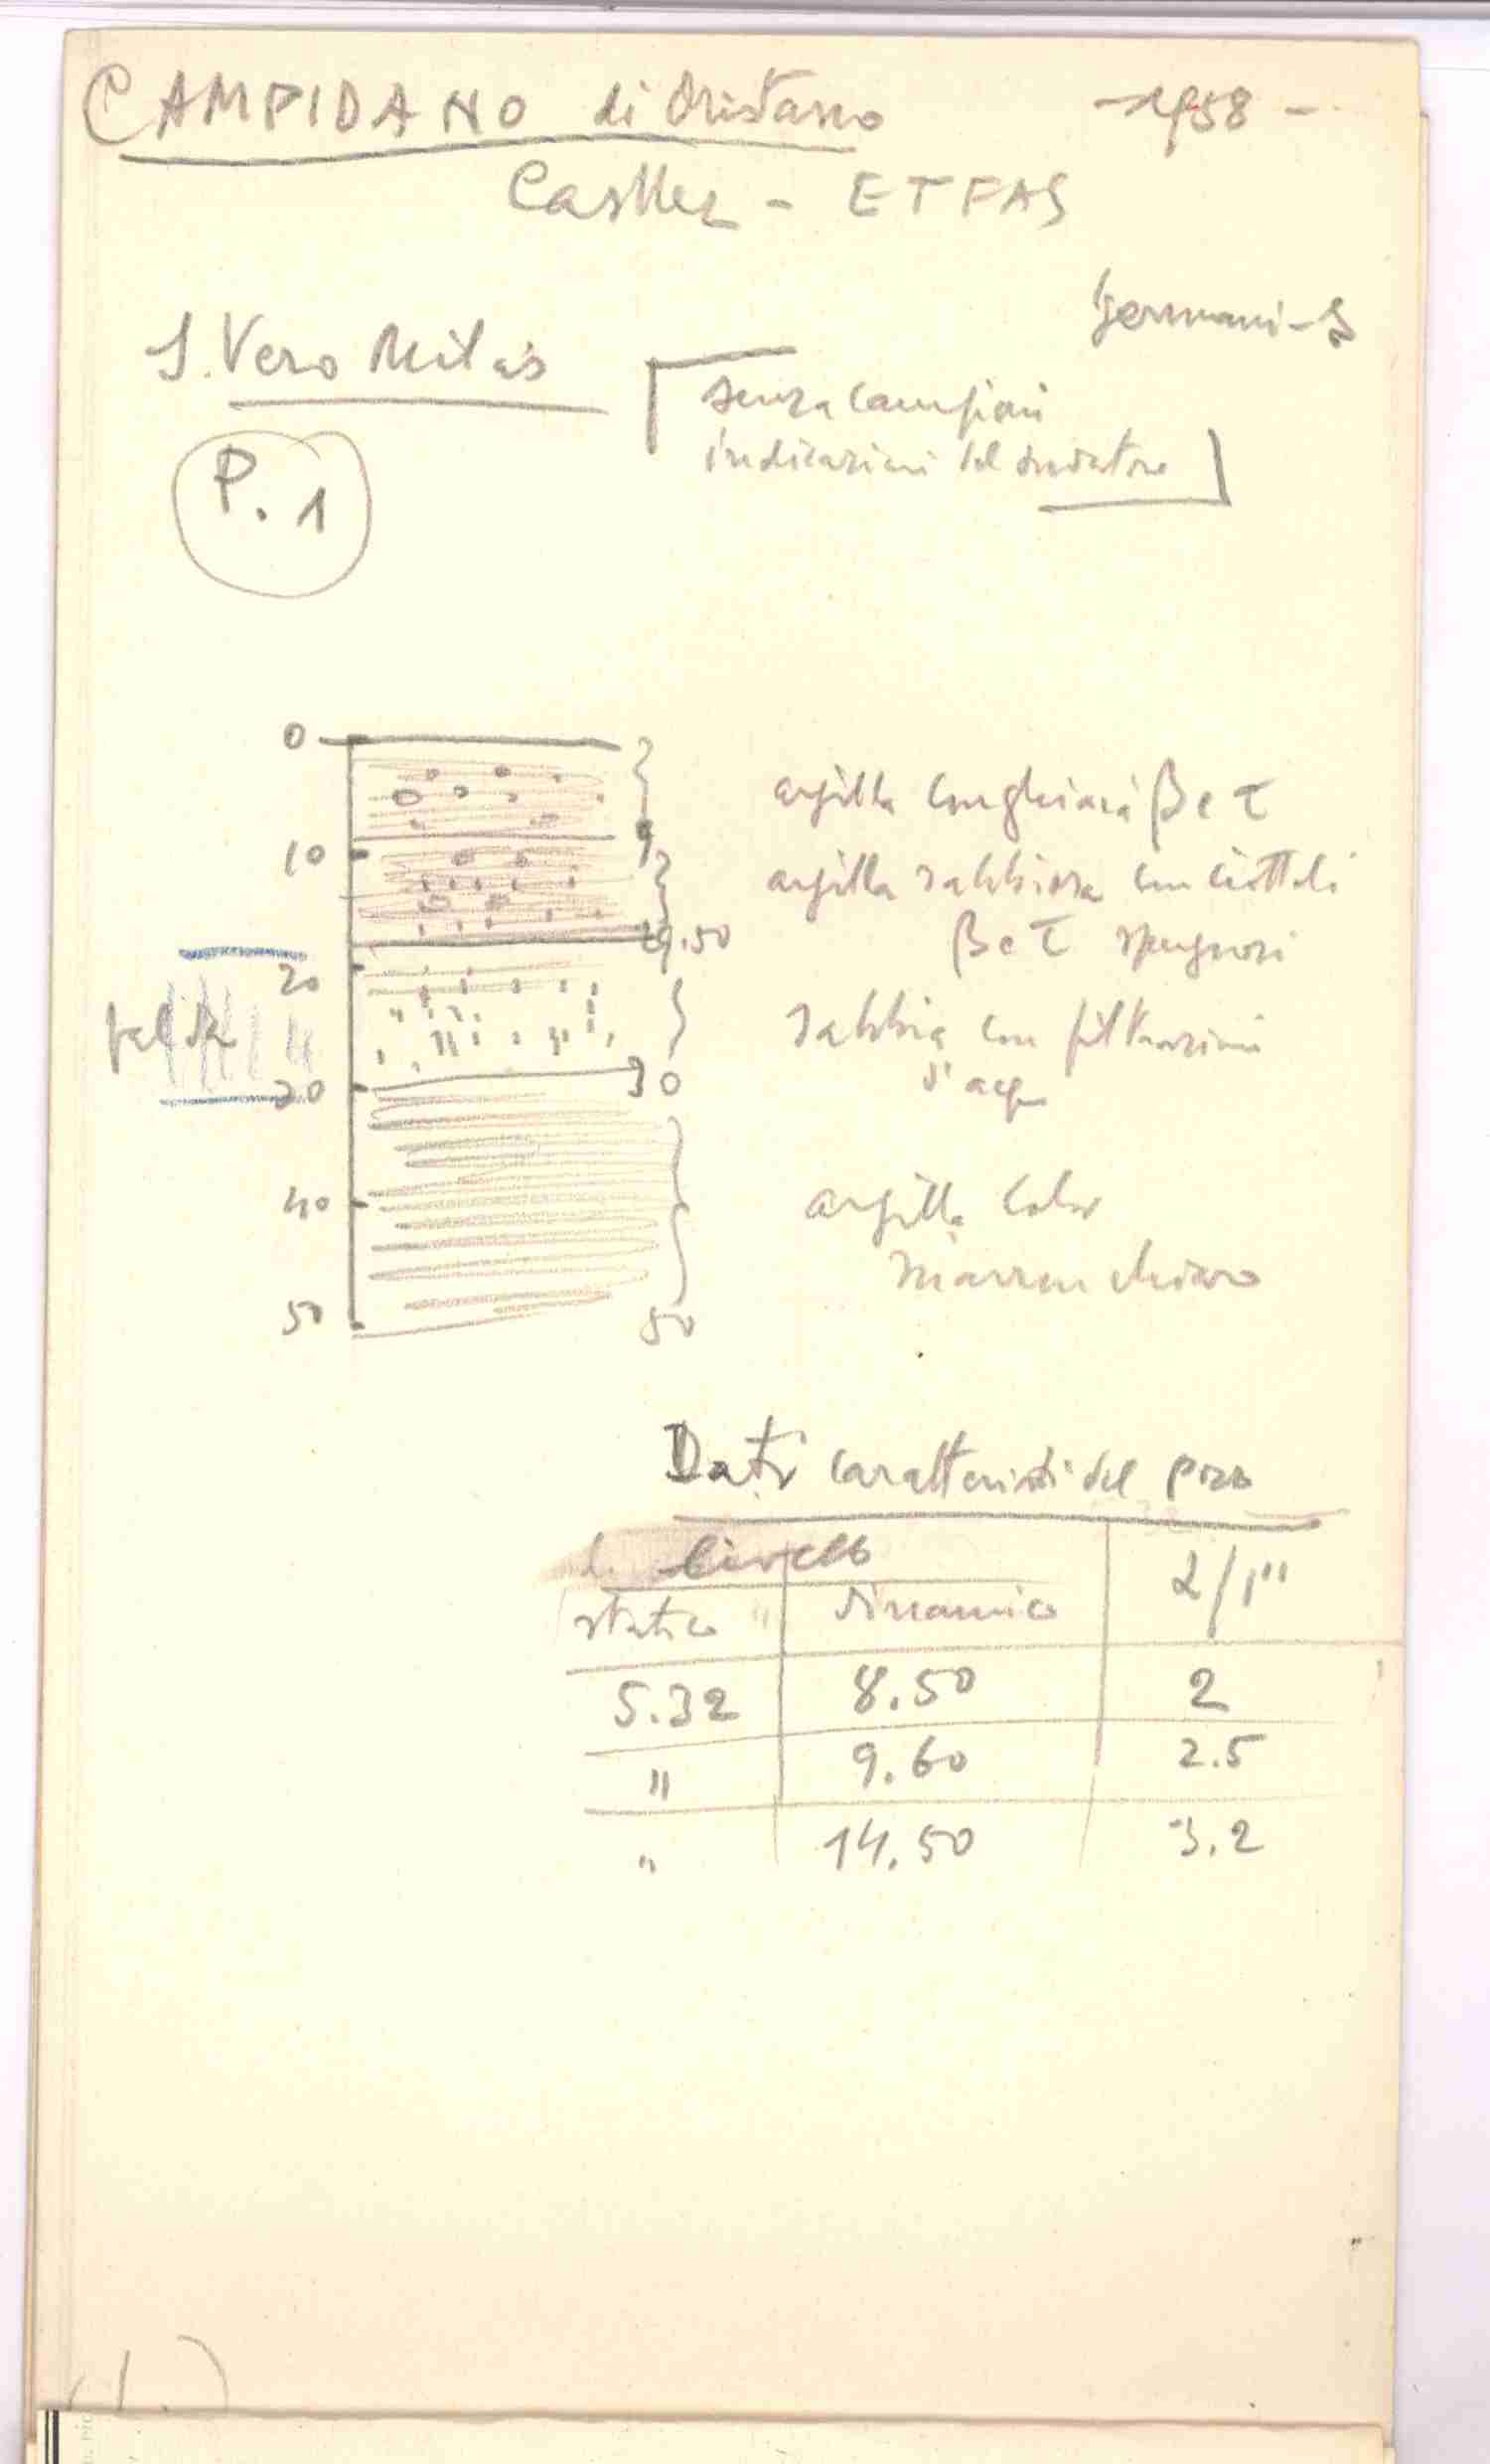 CAMPIDANO di Oristano -1958-
- ETFAS
Germani-S
S. Vero Milis
senza campioni
indicazioni del sondatore
P. 1
0
argilla con ghiaia β e τ
9
10
argilla sabbiosa con ciottoli
β e τ spugnosi
19.50
20
falda
sabbia con filtrazioni
d'acqua
30
30
40
argilla color
marron chiaro
50
50
Dati caratteristici del pozzo
livello
l/1"
statico dinamico
5.32 8.50 2
" 9.60 2.5
" 14.50 3.2